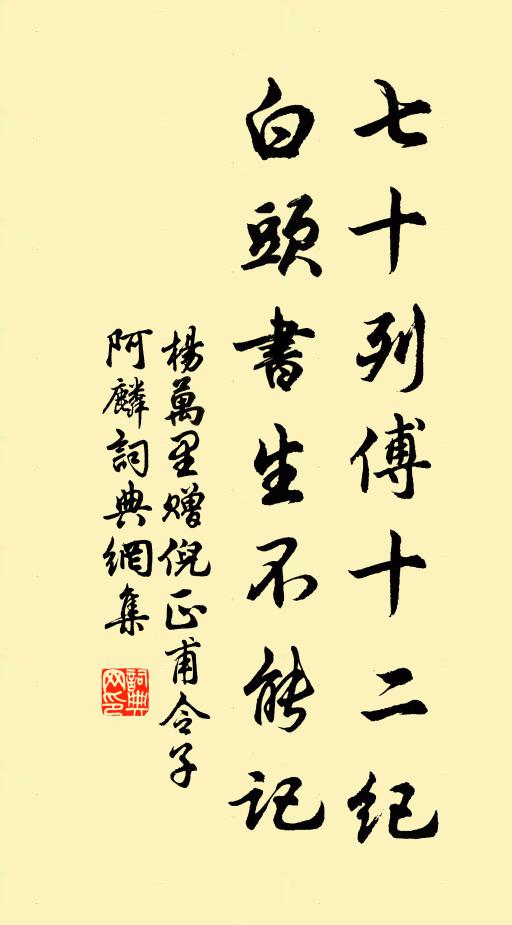 七十列傅十二紀
白頭書生不能記
楊萬里贈倪正甫令子
阿麟詞典網集
詞典網印